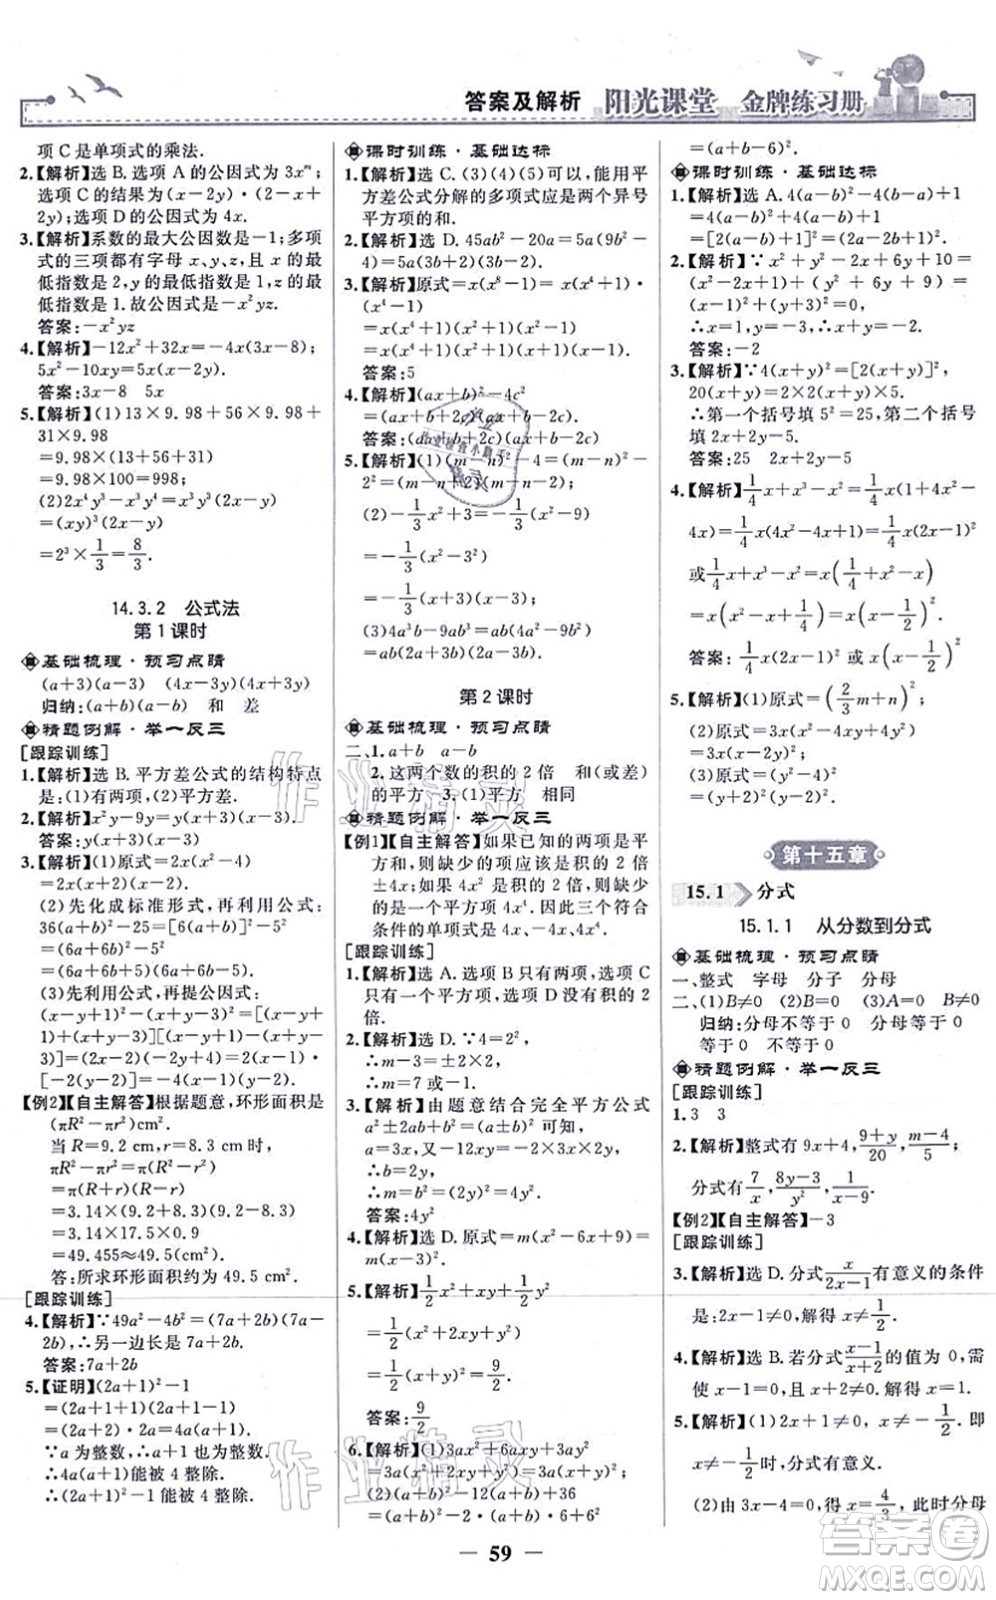 答案及解析 阳光课堂 金牌练习册
项C是单项式的乘法.
2.【解析】选B.选项A的公因式为3xᵐ;
选项C的结果为(x-2y)·(x+
2y);选项D的公因式为4x.
3.【解析】系数的最大公因数是-1;多项
式的三项都有字母xyz,且x的最
低指数是2,y的最低指数是1,z的最
低指数是1.故公因式是-x²yz.
答案:-x²yz
4.【解析】-12x²+32x=-4x(3x-8);
5x²-10xy=5x(x-2y).
答案:3x-8 5x
5.【解析】(1)13×9.98+56×9.98+
31×9.98
=9.98×(13+56+31)
=9.98×100=998;
(2)2x⁴y³-x³y³=x³y³(2x-y)
=(xy)³(2x-y)
=2³×1/3=8/3.
14.3.2 公式法
第1课时
基础梳理·预习点睛
(a+3)(a-3) (4x-3y)(4x+3y)
归纳:(a+b)(a-b) 和 差
精题例解·举一反三
[跟踪训练]
1.【解析】选B.平方差公式的结构特点
是:(1)有两项,(2)平方差.
2.【解析】x²y-9y=y(x+3)(x-3).
答案:y(x+3)(x-3)
3.【解析】(1)原式=2x(x²-4)
=2x(x+2)(x-2).
(2)先化成标准形式,再用公式:
36(a+b)²-25=[6(a+b)]²-5²
=(6a+6b)²-5²
=(6a+6b+5)(6a+6b-5).
(3)先利用公式,再提公因式:
(x-y-1)²-(x+y-3)²=[(x-y-1)
+(x+y-3)][(x-y-1)-(x+y-
3)]=(2x-4)(-2y+2)=2(x-2)·
[-2(y-1)]=-4(x-2)(y-1).
【例2】【自主解答】根据题意,环形面积是
(πR²-πr²)cm².
当R=9.2 cm,r=8.3 cm时,
πR²-πr²
=π(R+r)(R-r)
=3.14×(9.2+8.3)(9.2-8.3)
=3.14×17.5×0.9
=49.455≈49.5(cm²).
答:所求环形面积约为49.5 cm².
[跟踪训练]
4.【解析】∵49a²-4b²=(7a+2b)(7a-
2b),∴另一边长是7a+2b.
答案:7a+2b
5.【证明】(2a+1)²-1
=(2a+1+1)(2a+1-1)
=(2a+2)·2a=4a(a+1).
∵a为整数,∴a+1为整数.
∴4a(a+1)能被4整除.
∴(2a+1)²-1能被4整除.
课时训练·基础达标
1.【解析】选C.(3)(4)(5)可以,能用平
方差公式分解的多项式应是两个异号
平方项的和.
2.【解析】选D.45ab²-20a=5a(9b²-4)
=5a(3b+2)(3b-2).
3.【解析】原式=x(x⁸-1)=x(x⁴+1)·
(x⁴-1)
=x(x⁴+1)(x²+1)(x²-1)
=x(x⁴+1)(x²+1)(x+1)(x-1).
答案:5
4.【解析】(ax+b)²-4c²
=(ax+b+2c)(ax+b-2c).
答案:(ax+b+2c)(ax+b-2c)
5.【解析】(1)(m-n)²-4=(m-n)²-
2²=(m-n+2)(m-n-2).
(2)-1/3x²+3=-1/3(x²-9)
=-1/3(x²-3²)
=-1/3(x+3)(x-3).
(3)4a³b-9ab³=ab(4a²-9b²)=
ab(2a+3b)(2a-3b).
第2课时
基础梳理·预习点睛
二、1.a+b a-b
2.这两个数的积的2倍 和(或差)
的平方 3.(1)平方 相同
精题例解·举一反三
【例1】【自主解答】如果已知的两项是平
方和,则缺少的项应该是积的2倍
±4x;如果4x²是积的2倍,则缺少的
项为4x⁴,因此,三个符合
条件的单项式是4x、-4x、4x⁴.
[跟踪训练]
1.【解析】选A.选项B只有两项,选项C
只有一个平方项,选项D没有积的2
倍.
2.【解析】选D.∵4=2²,
∴m-3=±2×2,
∴m=7或m=-1.
3.【解析】由题意结合完全平方公式
a²±2ab+b²=(a±b)²,可得
a=3x,又2ab=12xy,
∴b=2y,
∴b²=(2y)²=4y².
答案:4y²
4.【解析】选D.原式=m(x²-6x+9)=
m(x-3)².
5.【解析】1/2x²+xy+1/2y²
=1/2(x²+2xy+y²)
=1/2(x+y)²=9/2.
答案:9/2
6.【解析】(1)3ax²+6axy+3ay²
=3a(x²+2xy+y²)=3a(x+y)².
(2)(a+b)²-12(a+b)+36
=(a+b)²-2(a+b)·6+6²
=(a+b-6)².
课时训练·基础达标
1.【解析】选A.4(a-b)²-4(b-a)+1
=4(a-b)²+4(a-b)+1
=[2(a-b)+1]²=(2a-2b+1)².
2.【解析】∵x²+y²-2x+6y+10=
(x²-2x+1)+(y²+6y+9)=
(x-1)²+(y+3)²=0,
∴x=1,y=-3,∴x+y=-2.
答案:-2
3.【解析】∵4x²+20x+5²=[(2x)²+
20(x)+5²]=(2x+5)²,
∴第一个括号填5²=25,第二个括号
填2x+5.
答案:25 2x+5
4.【解析】1/4x+x³-x²=1/4x(1+4x²-
4x)=1/4x(4x²-4x+1)=1/4x(2x-1)²
或1/4x+x³-x²=x(x²-x+1/4)
=x(x-1/2)².
答案:1/4x(2x-1)²或x(x-1/2)²
5.【解析】(1)原式=(2/3m+n)²;
(2)原式=3x(x²-2xy+y²)
=3x(x-y)²;
(3)原式=(x-y+2)².
第十五章
15.1 分式
15.1.1 从分数到分式
基础梳理·预习点睛
一、整式 字母 分子 分母
二、(1)B≠0 (2)B=0 (3)A=0 B≠0
归纳:分母不等于0 分母等于0
等于0 不等于0
精题例解·举一反三
[跟踪训练]
1.3 3
2.【解析】整式有9x+4,(9+y)/20,(m-4)/5;
分式有7/x,(8y-3)/y²,1/(x-9).
【例2】【自主解答】-3
[跟踪训练]
3.【解析】选D.分式x/(2x-1)有意义的条件
是:2x-1≠0,解得x≠1/2.
4.【解析】选B.若分式(x-1)/(x+2)的值为0,需
使x-1=0且x+2≠0,解得x=1.
5.【解析】(1)2x+1≠0,x≠-1/2.即
x≠-1/2时,分式有意义.
(2)由3x-4=0得x=4/3,此时分母
59
作业精灵
作业精灵
答案圈
MXQE.COM